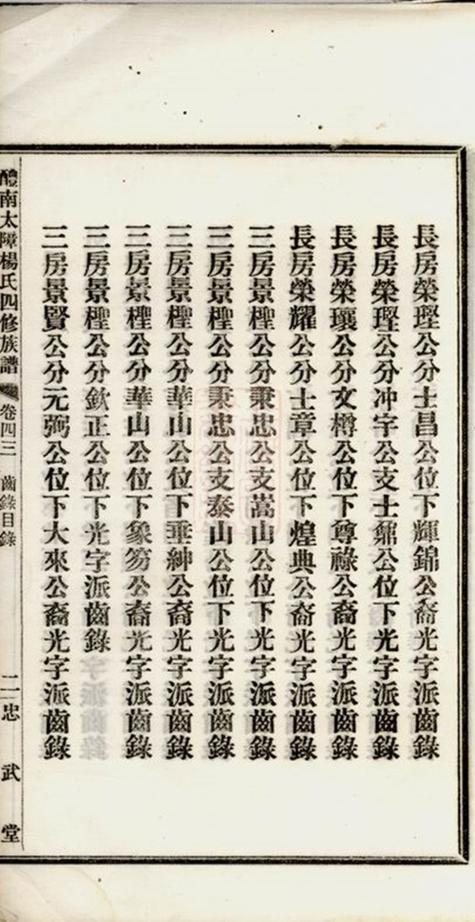 長房榮㻞公分士昌公位下輝錦公裔光字派齒錄
長房榮㻞公分冲宇公支士鼐公位下光字派齒錄
長房榮瓖公分文樽公位下尊祿公裔光字派齒錄
長房榮耀公分士章公位下煌典公裔光字派齒錄
三房景檉公分秉忠公支嵩山公位下光字派齒錄
三房景檉公分秉忠公支泰山公位下光字派齒錄
三房景檉公分華山公位下垂紳公裔光字派齒錄
三房景檉公分華山公位下象笏公裔光字派齒錄
三房景檉公分欽正公位下光字派齒錄
三房景賢公分元弼公位下大來公裔光字派齒錄
醴南太障楊氏四修族譜 卷四三 齒錄目錄 二 忠武堂